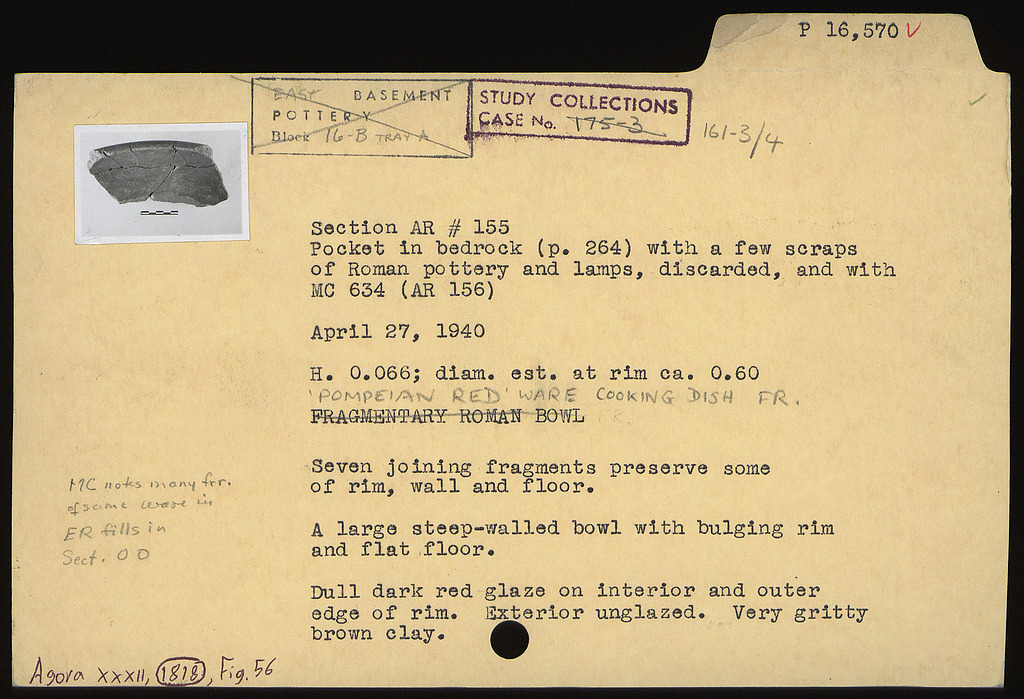 P 16,570 ✓
EAST BASEMENT
POTTERY
Block 16-B TRAY A
STUDY COLLECTIONS
CASE No. 175-3
161-3/4
Section AR # 155
Pocket in bedrock (p. 264) with a few scraps
of Roman pottery and lamps, discarded, and with
MC 634 (AR 156)
April 27, 1940
H. 0.066; diam. est. at rim ca. 0.60
'POMPEIAN RED' WARE COOKING DISH FR.
FRAGMENTARY ROMAN BOWL
Seven joining fragments preserve some
of rim, wall and floor.
MC notes many frr.
of same ware in
ER fills in
Sect. OO
A large steep-walled bowl with bulging rim
and flat floor.
Dull dark red glaze on interior and outer
edge of rim. Exterior unglazed. Very gritty
brown clay.
Agora XXXII, 1818, Fig. 56